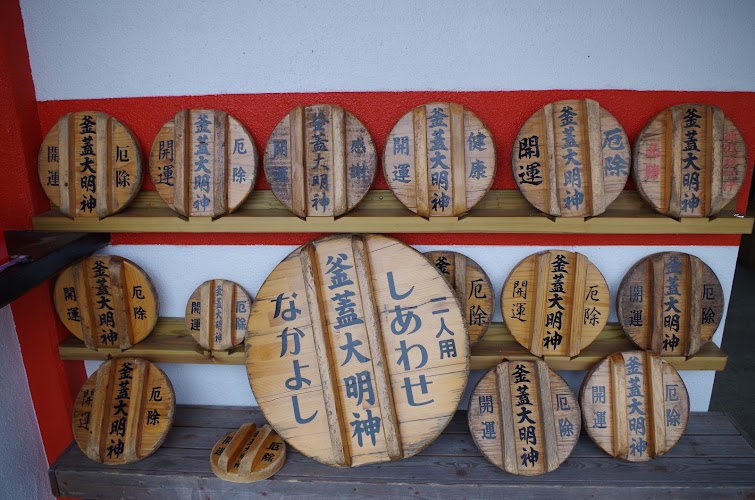 厄除
釜蓋大明神
開運
厄除
釜蓋大明神
開運
感謝
釜蓋大明神
開運
健康
釜蓋大明神
開運
厄除
釜蓋大明神
開運
釜蓋大明神
厄除
釜蓋大明神
開運
厄除
釜蓋大明神
開運
二人用
しあわせ
釜蓋大明神
なかよし
厄除
厄除
釜蓋大明神
開運
厄除
釜蓋大明神
開運
厄除
釜蓋大明神
開運
厄除
釜蓋大明神
開運
厄除
釜蓋大明神
開運
厄除
釜蓋大明神
開運